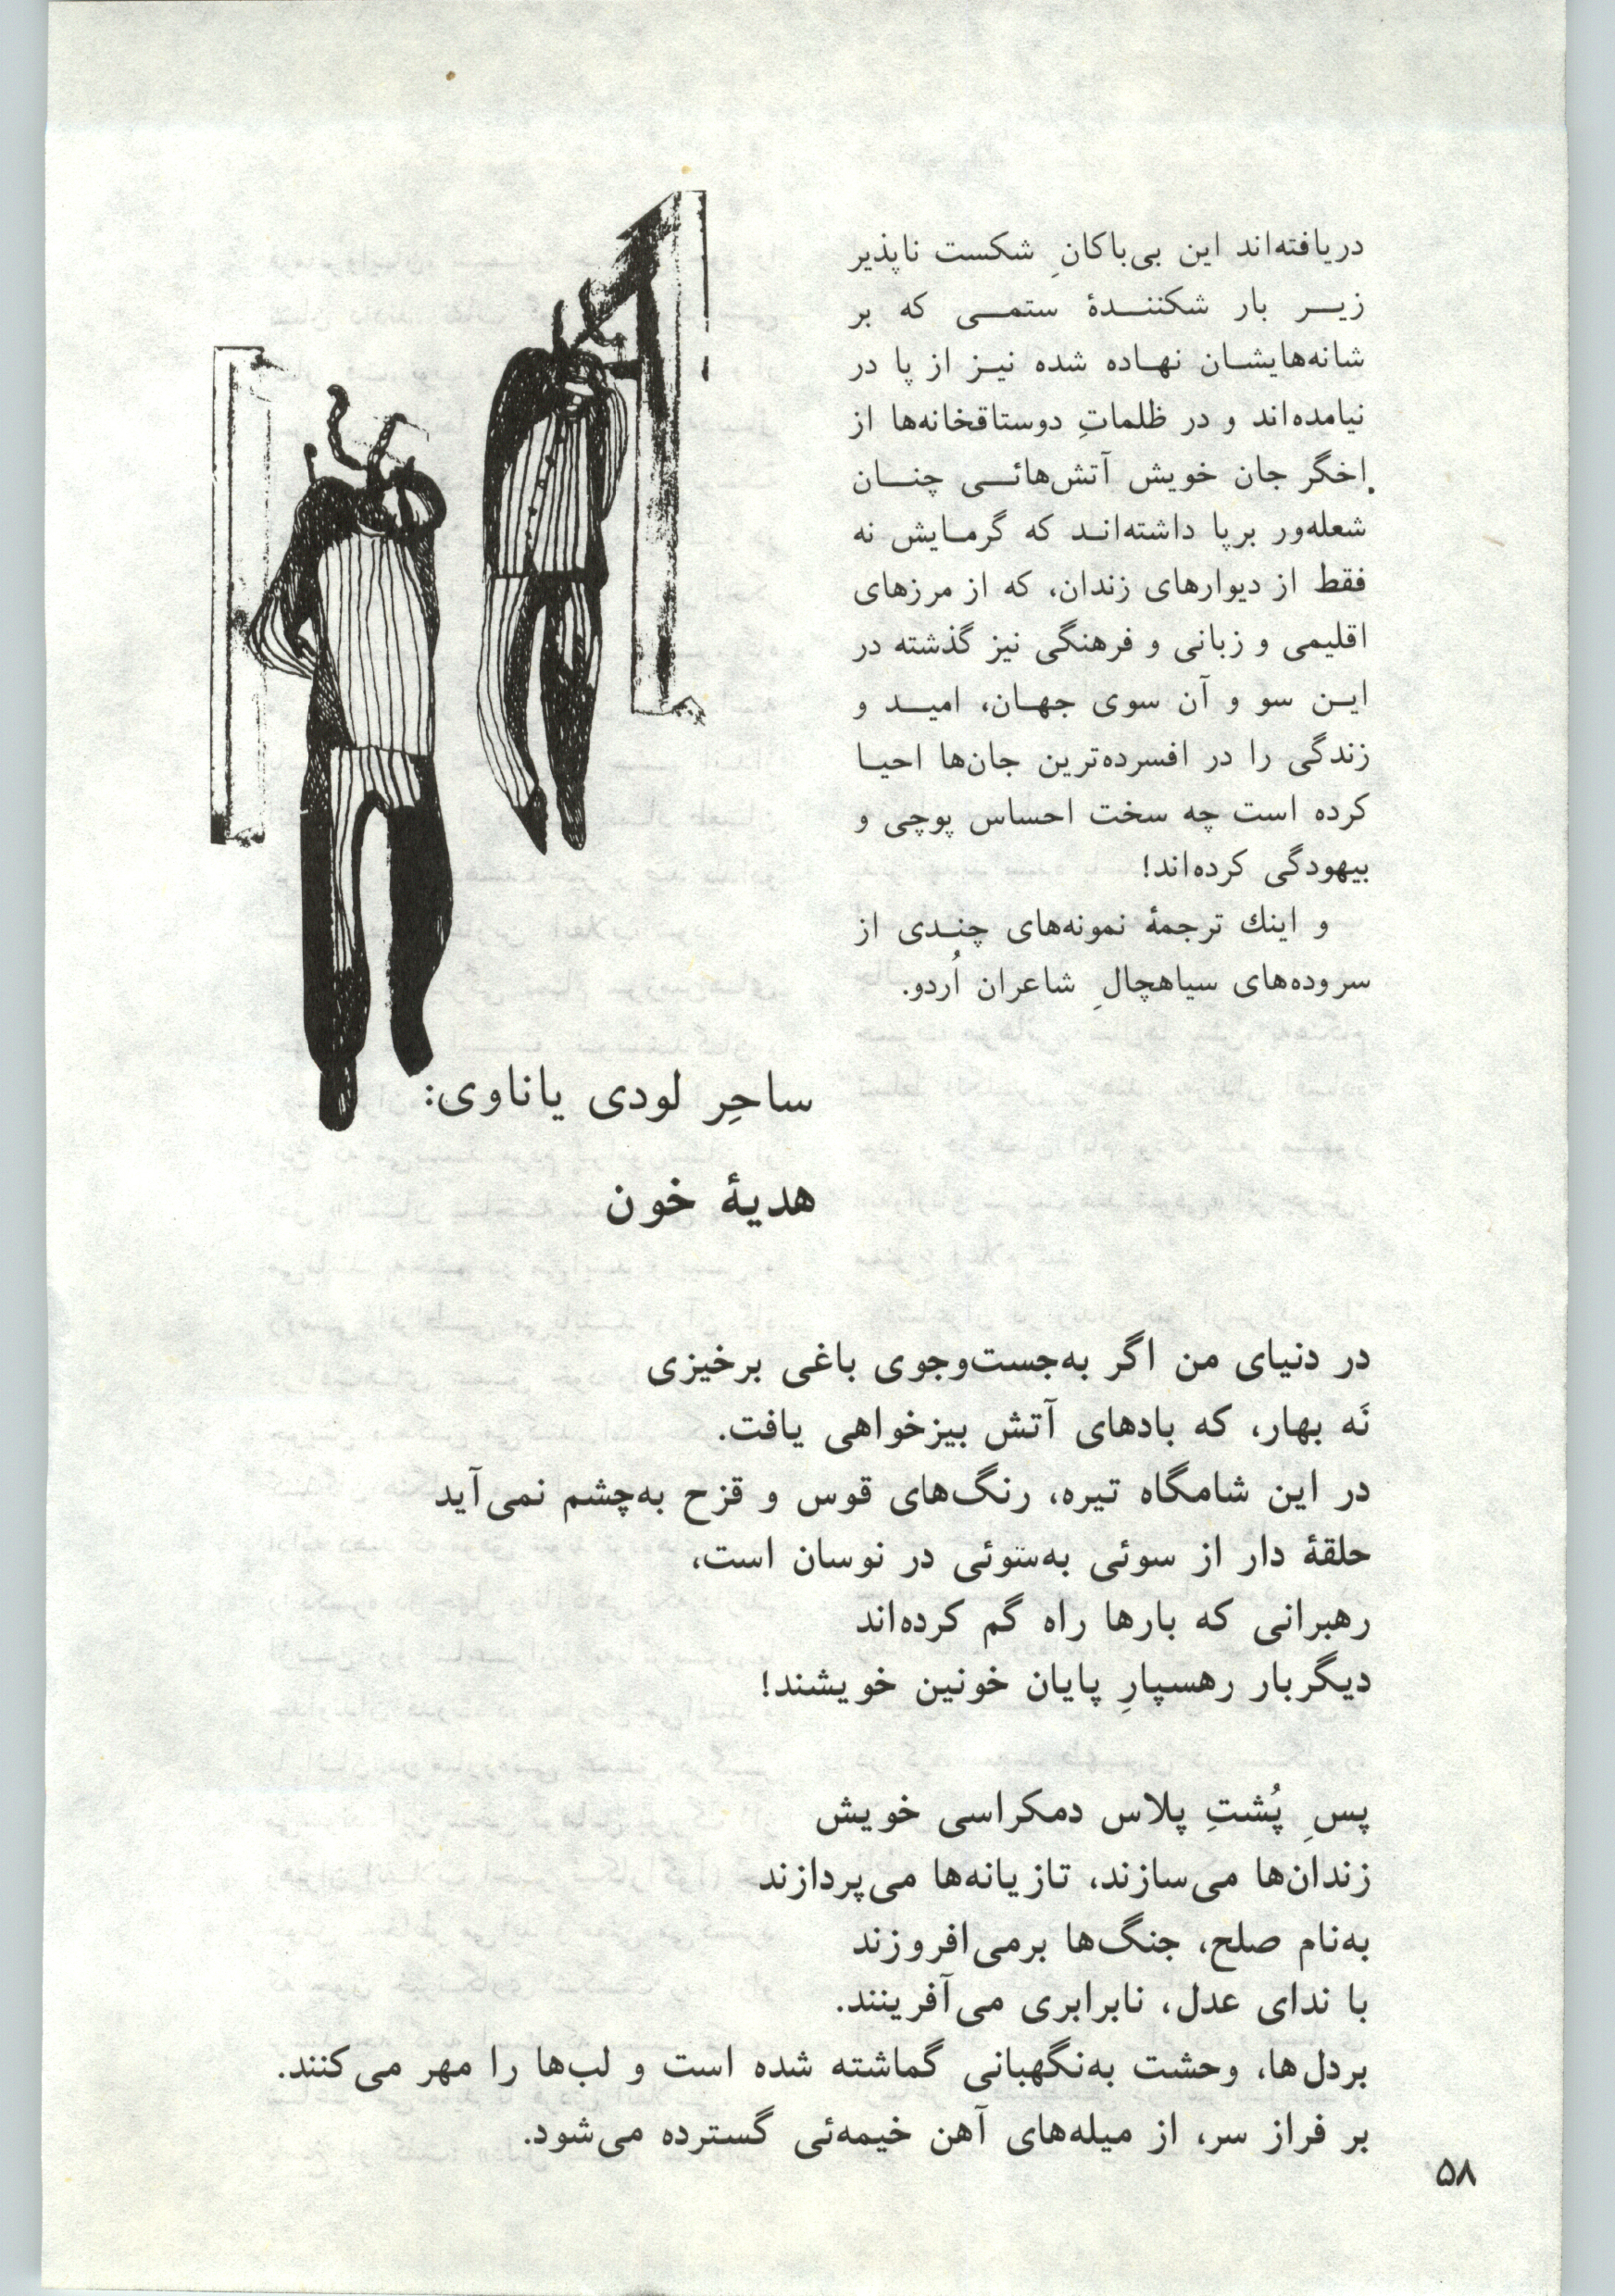 دریافته‌اند این بی‌باکانِ شکست ناپذیر
زیـــر بار شکننـــدۀ ستمـــی که بر
شانه‌هایشـان نهـاده شده نیـز از پا در
نیامده‌اند و در ظلماتِ دوستاقخانه‌ها از
اخگر جان خویش آتش‌هائــی چنــان
شعله‌ور برپا داشته‌انـد که گرمـایش نه
فقط از دیوارهای زندان، که از مرزهای
اقلیمی و زبانی و فرهنگی نیز گذشته در
ایـن سو و آن سوی جهـان، امیـد و
زندگی را در افسرده‌ترین جان‌ها احیـا
کرده است چه سخت احساس پوچی و
بیهودگی کرده‌اند!
و اینك ترجمۀ نمونه‌های چنـدی از
سروده‌های سیاهچالِ شاعران اُردو.
ساحِر لودی یاناوی:
هدیۀ خون
در دنیای من اگر به‌جست‌وجوی باغی برخیزی
نَه بهار، که بادهای آتش بیزخواهی یافت.
در این شامگاه تیره، رنگ‌های قوس و قزح به‌چشم نمی‌آید
حلقۀ دار از سوئی به‌سوئی در نوسان است،
رهبرانی که بارها راه گم کرده‌اند
دیگربار رهسپارِ پایان خونین خویشند!
پسِ پُشتِ پلاس دمکراسی خویش
زندان‌ها می‌سازند، تازیانه‌ها می‌پردازند
به‌نام صلح، جنگ‌ها برمی‌افروزند
با ندای عدل، نابرابری می‌آفرینند.
بردل‌ها، وحشت به‌نگهبانی گماشته شده است و لب‌ها را مهر می‌کنند.
بر فراز سر، از میله‌های آهن خیمه‌ئی گسترده می‌شود.
۵۸